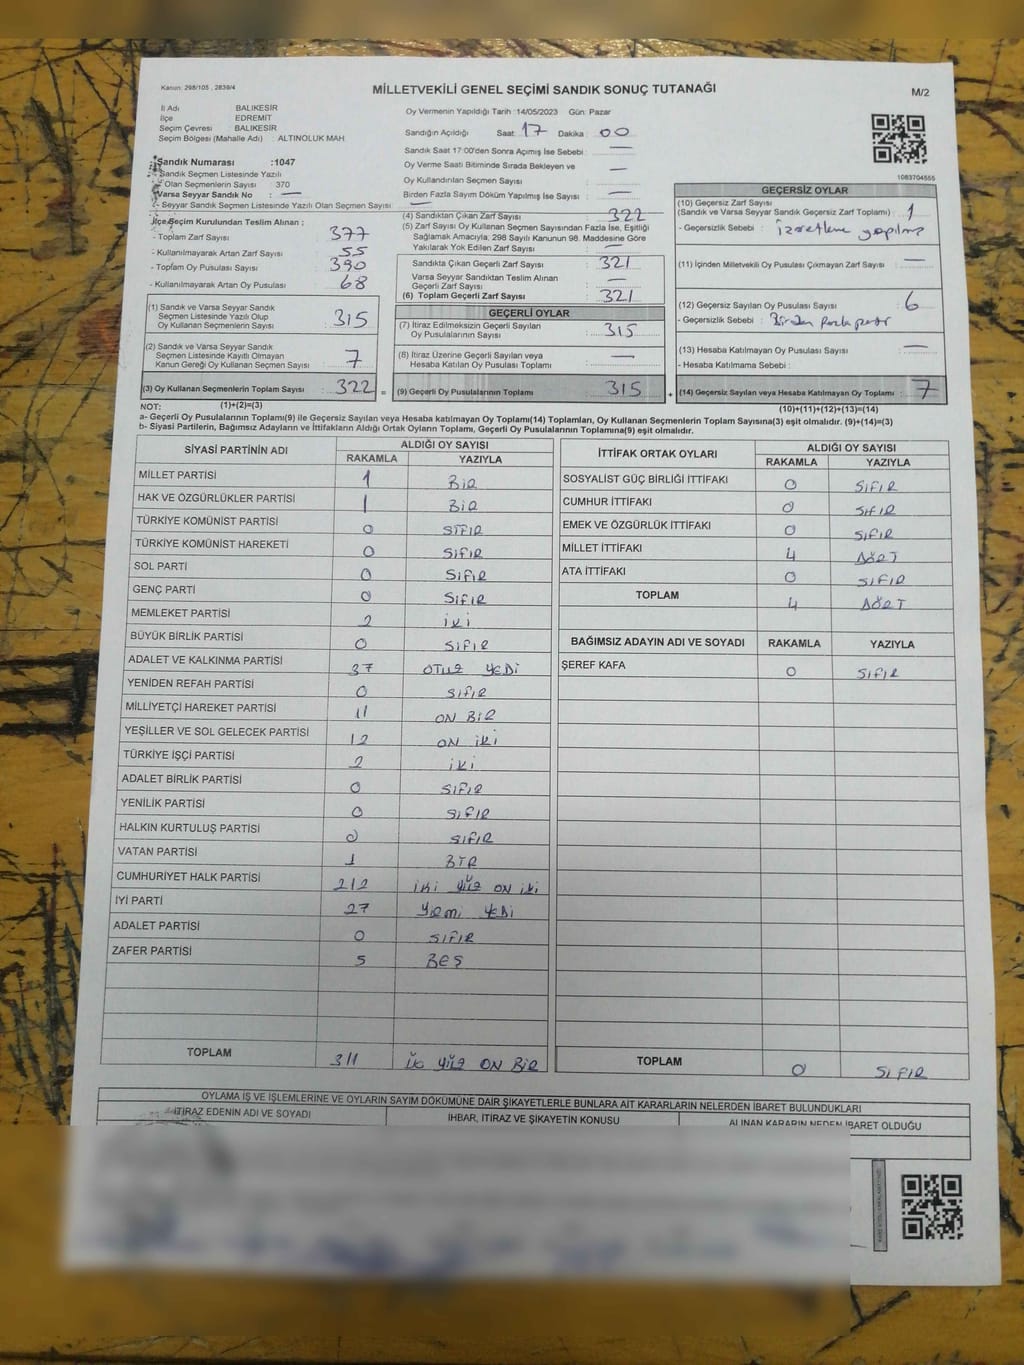 Kanun: 298/105 , 2839/4
MİLLETVEKİLİ GENEL SEÇİMİ SANDIK SONUÇ TUTANAĞI
M/2
İl Adı BALIKESİR
İlçe EDREMİT
Seçim Çevresi BALIKESİR
Seçim Bölgesi (Mahalle Adı) : ALTINOLUK MAH
Oy Vermenin Yapıldığı Tarih :14/05/2023 Gün: Pazar
Sandığın Açıldığı Saat: 17 Dakika : 00
Sandık Saat 17:00'den Sonra Açımış İse Sebebi : —
Oy Verme Saati Bitiminde Sırada Bekleyen ve
Oy Kullandırılan Seçmen Sayısı : —
Birden Fazla Sayım Döküm Yapılmış İse Sayısı : —
1083704555
Sandık Numarası :1047
Sandık Seçmen Listesinde Yazılı
Olan Seçmenlerin Sayısı : 370
Varsa Seyyar Sandık No : —
- Seyyar Sandık Seçmen Listesinde Yazılı Olan Seçmen Sayısı : —
İlçe Seçim Kurulundan Teslim Alınan :
- Toplam Zarf Sayısı : 377
- Kullanılmayarak Artan Zarf Sayısı : 55
- Toplam Oy Pusulası Sayısı : 390
- Kullanılmayarak Artan Oy Pusulası : 68
(1) Sandık ve Varsa Seyyar Sandık
Seçmen Listesinde Yazılı Olup
Oy Kullanan Seçmenlerin Sayısı : 315
(2) Sandık ve Varsa Seyyar Sandık
Seçmen Listesinde Kayıtlı Olmayan
Kanun Gereği Oy Kullanan Seçmen Sayısı : 7
(3) Oy Kullanan Seçmenlerin Toplam Sayısı : 322 =
(1)+(2)=(3)
(4) Sandıktan Çıkan Zarf Sayısı : 322
(5) Zarf Sayısı Oy Kullanan Seçmen Sayısından Fazla İse, Eşitliği
Sağlamak Amacıyla, 298 Sayılı Kanunun 98. Maddesine Göre
Yakılarak Yok Edilen Zarf Sayısı : —
Sandıkta Çıkan Geçerli Zarf Sayısı : 321
Varsa Seyyar Sandıktan Teslim Alınan
Geçerli Zarf Sayısı : —
(6) Toplam Geçerli Zarf Sayısı : 321
GEÇERLİ OYLAR
(7) İtiraz Edilmeksizin Geçerli Sayılan
Oy Pusulalarının Sayısı : 315
(8) İtiraz Üzerine Geçerli Sayılan veya
Hesaba Katılan Oy Pusulası Toplamı : —
(9) Geçerli Oy Pusulalarının Toplamı : 315 +
GEÇERSİZ OYLAR
(10) Geçersiz Zarf Sayısı
(Sandık ve Varsa Seyyar Sandık Geçersiz Zarf Toplamı) : 1
- Geçersizlik Sebebi :
(11) İçinden Milletvekili Oy Pusulası Çıkmayan Zarf Sayısı : —
(12) Geçersiz Sayılan Oy Pusulası Sayısı : 6
- Geçersizlik Sebebi : Birden fazla
(13) Hesaba Katılmayan Oy Pusulası Sayısı : —
- Hesaba Katılmama Sebebi :
(14) Geçersiz Sayılan veya Hesaba Katılmayan Oy Toplamı : 7
(10)+(11)+(12)+(13)=(14)
NOT:
a- Geçerli Oy Pusulalarının Toplamı(9) ile Geçersiz Sayılan veya Hesaba katılmayan Oy Toplamı(14) Toplamları, Oy Kullanan Seçmenlerin Toplam Sayısına(3) eşit olmalıdır. (9)+(14)=(3)
b- Siyasi Partilerin, Bağımsız Adayların ve İttifakların Aldığı Ortak Oyların Toplamı, Geçerli Oy Pusulalarının Toplamına(9) eşit olmalıdır.
SİYASİ PARTİNİN ADI ALDIĞI OY SAYISI
RAKAMLA YAZIYLA
MİLLET PARTİSİ 1 BİR
HAK VE ÖZGÜRLÜKLER PARTİSİ 1 BİR
TÜRKİYE KOMÜNİST PARTİSİ 0 SIFIR
TÜRKİYE KOMÜNİST HAREKETİ 0 SIFIR
SOL PARTİ 0 SIFIR
GENÇ PARTİ 0 SIFIR
MEMLEKET PARTİSİ 2 iki
BÜYÜK BİRLİK PARTİSİ 0 SIFIR
ADALET VE KALKINMA PARTİSİ 37 OTUZ YEDİ
YENİDEN REFAH PARTİSİ 0 SIFIR
MİLLİYETÇİ HAREKET PARTİSİ 11 ON BİR
YEŞİLLER VE SOL GELECEK PARTİSİ 12 ON iki
TÜRKİYE İŞÇİ PARTİSİ 2 iki
ADALET BİRLİK PARTİSİ 0 SIFIR
YENİLİK PARTİSİ 0 SIFIR
HALKIN KURTULUŞ PARTİSİ 0 SIFIR
VATAN PARTİSİ 1 BİR
CUMHURİYET HALK PARTİSİ 212 iki yüz ON iki
İYİ PARTİ 27 Yirmi YEDİ
ADALET PARTİSİ 0 SIFIR
ZAFER PARTİSİ 5 BEŞ
TOPLAM 311 Üç yüz ON BİR
İTTİFAK ORTAK OYLARI ALDIĞI OY SAYISI
RAKAMLA YAZIYLA
SOSYALİST GÜÇ BİRLİĞİ İTTİFAKI 0 SIFIR
CUMHUR İTTİFAKI 0 SIFIR
EMEK VE ÖZGÜRLÜK İTTİFAKI 0 SIFIR
MİLLET İTTİFAKI 4 DÖRT
ATA İTTİFAKI 0 SIFIR
TOPLAM 4 DÖRT
BAĞIMSIZ ADAYIN ADI VE SOYADI RAKAMLA YAZIYLA
ŞEREF KAFA 0 SIFIR
TOPLAM 0 SIFIR
OYLAMA İŞ VE İŞLEMLERİNE VE OYLARIN SAYIM DÖKÜMÜNE DAİR ŞİKAYETLERLE BUNLARA AİT KARARLARIN NELERDEN İBARET BULUNDUKLARI
İTİRAZ EDENİN ADI VE SOYADI İHBAR, İTİRAZ VE ŞİKAYETİN KONUSU ALINAN KARARIN NEDEN İBARET OLDUĞU